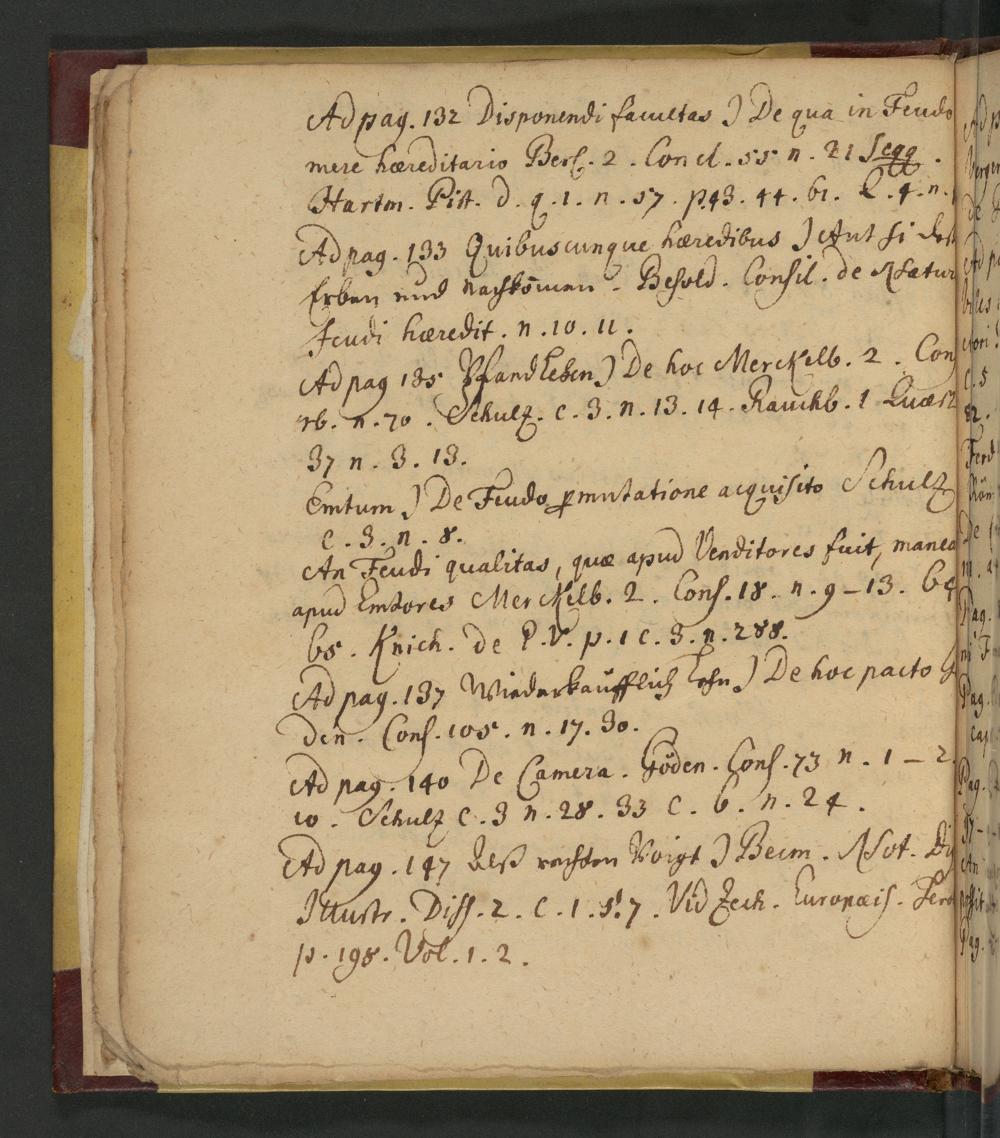 Ad pag. 132 Disponendi facultas ) De qua in Feudo
mere hæreditario Berl. 2. Concl. 55 n. 21 Seqq.
Hartm. Pist. d. q. 1. n. 57. p. 43. 44. 61. L. 4. n.
Ad pag. 133 Quibuscunque hæredibus ) Aut si
Erben und Nachkom̄en. Besold. Consil. de Natur
Feudi hæredit. n. 10. 11.
Ad pag 135 Pfandlehen ) De hoc Merckelb. 2. Con
rb. n. 70. Schulz. c. 3. n. 13. 14. Rauchb. 1 Quæst
37 n. 3. 13.
Emtum ) De Feudo ꝑmutatione acquisito Schulz
c. 3. n. 8.
An Feudi qualitas, quæ apud Venditores fuit, manea
apud Emtores Merckelb. 2. Cons. 18. n. 9-13. 64
65. Knich. de P. V. p. 1 c. 3. n. 288.
Ad pag. 137 Wiederkaüfflich Lehn ) De hoc pacto G
den. Cons. 105. n. 17. 30.
Ad pag. 140 De Camera. Göden. Cons. 73 n. 1 - 2
10. Schulz c. 3 n. 28. 33 c. 6. n. 24.
Ad pag. 147 Voigt ) Becm. Not. Di
Illustr. Diss. 2. c. 1. §. 7. Vid Zech. Europæis. Hero
p. 198. Vol. 1. 2.